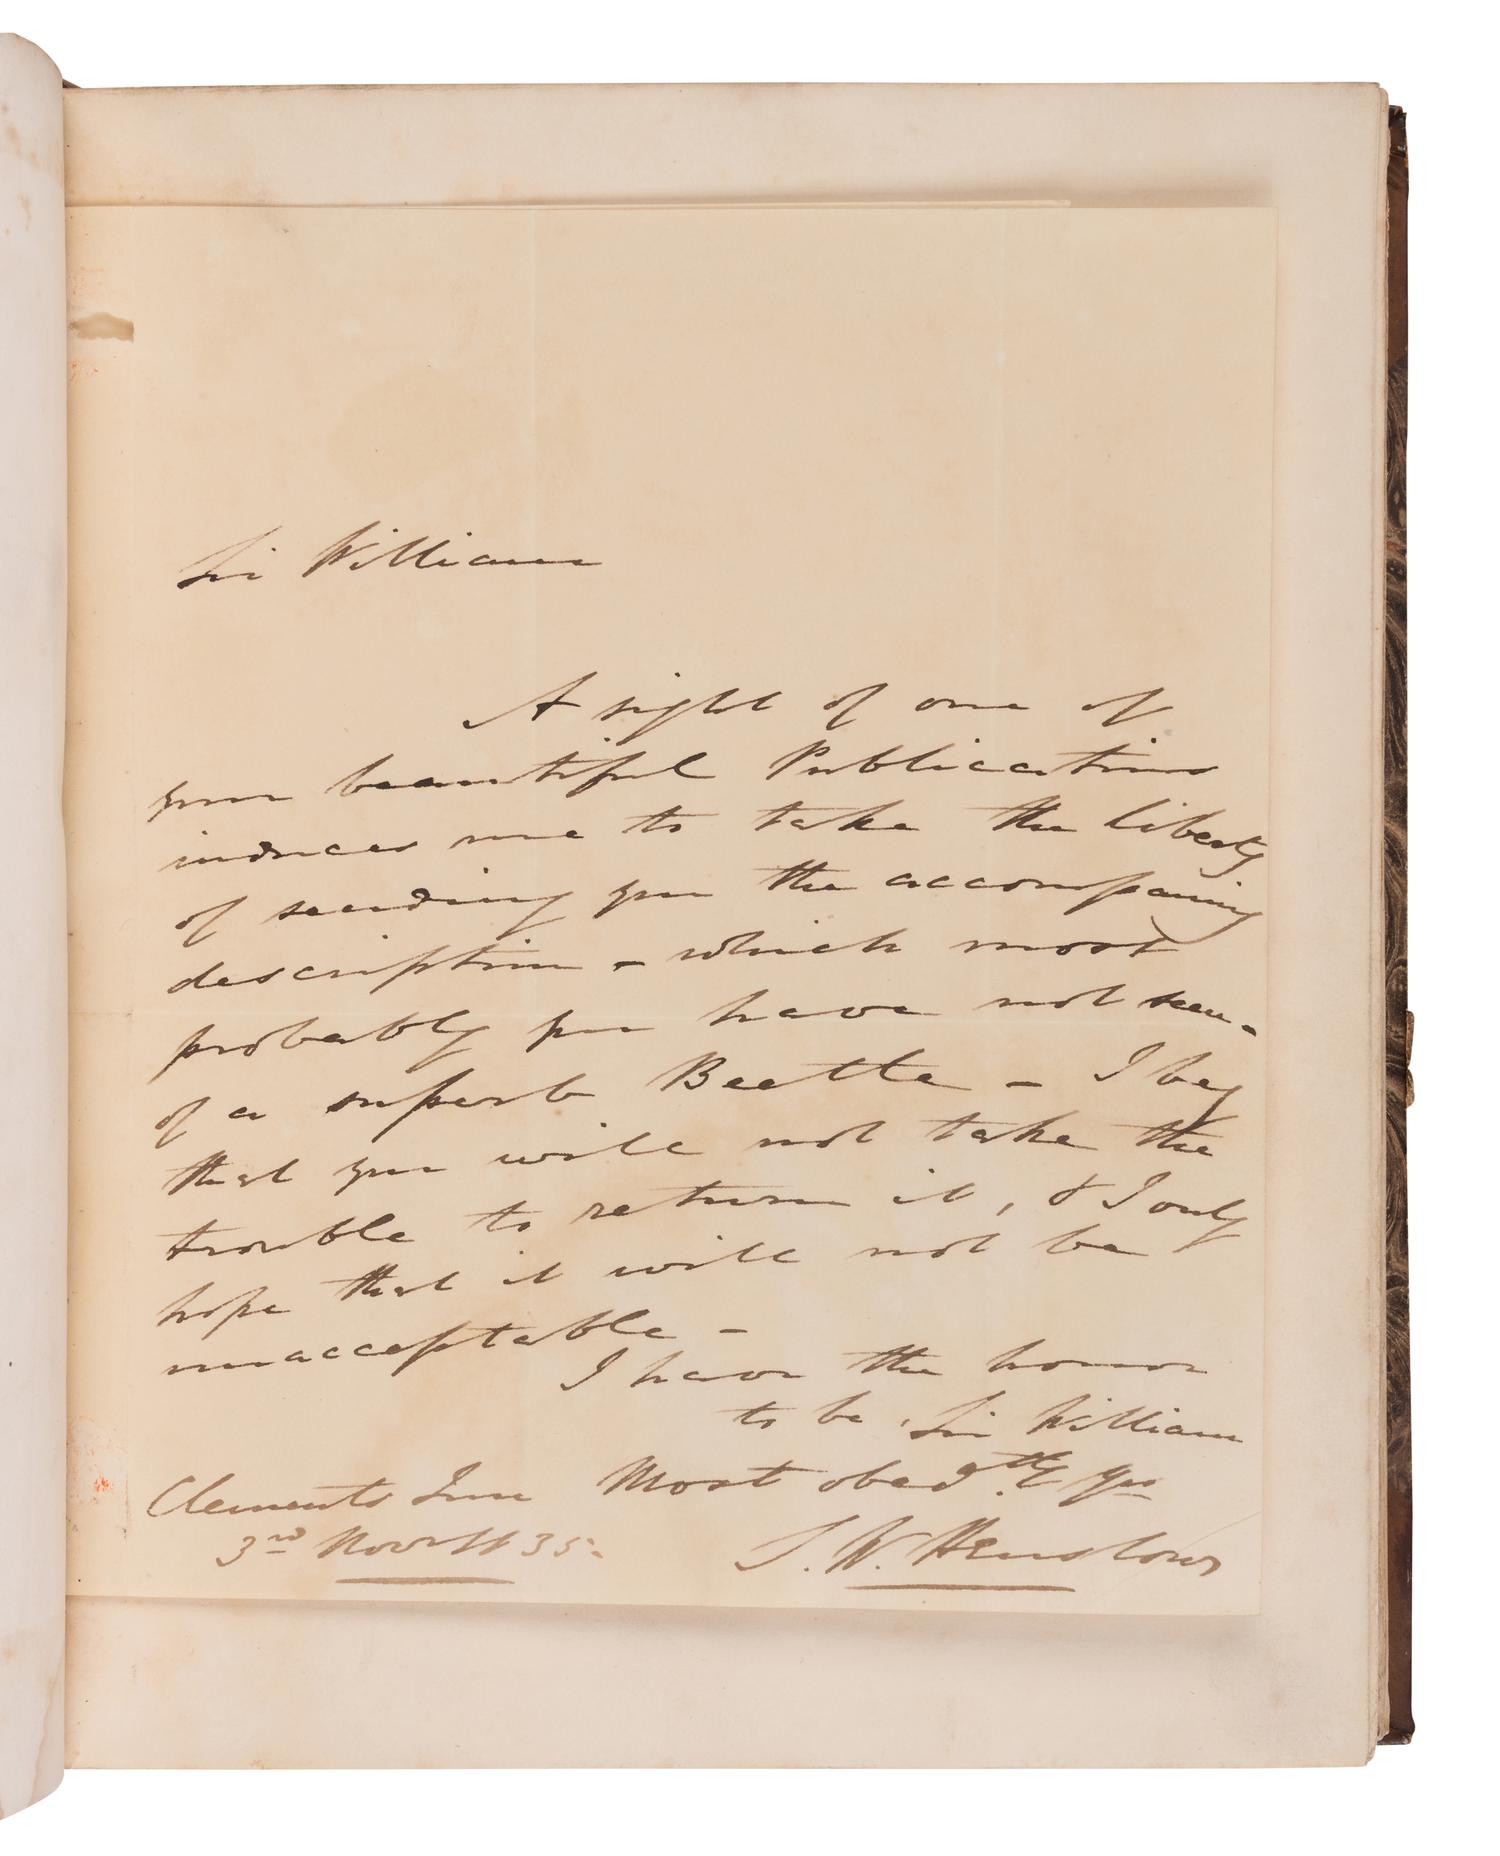 Sir William
A sight of one of
your beautiful Publications
induces me to take the liberty
of sending you the accompaning
description - which most
probably you have not seen -
of a superb Beetle - I beg
that you will not take the
trouble to return it, & I only
hope that it will not be
unacceptable -
I have the honor
to be, Sir William
Clements Inn Most obedtly Yrs
3rd Novr 35.
J. W. Henslow